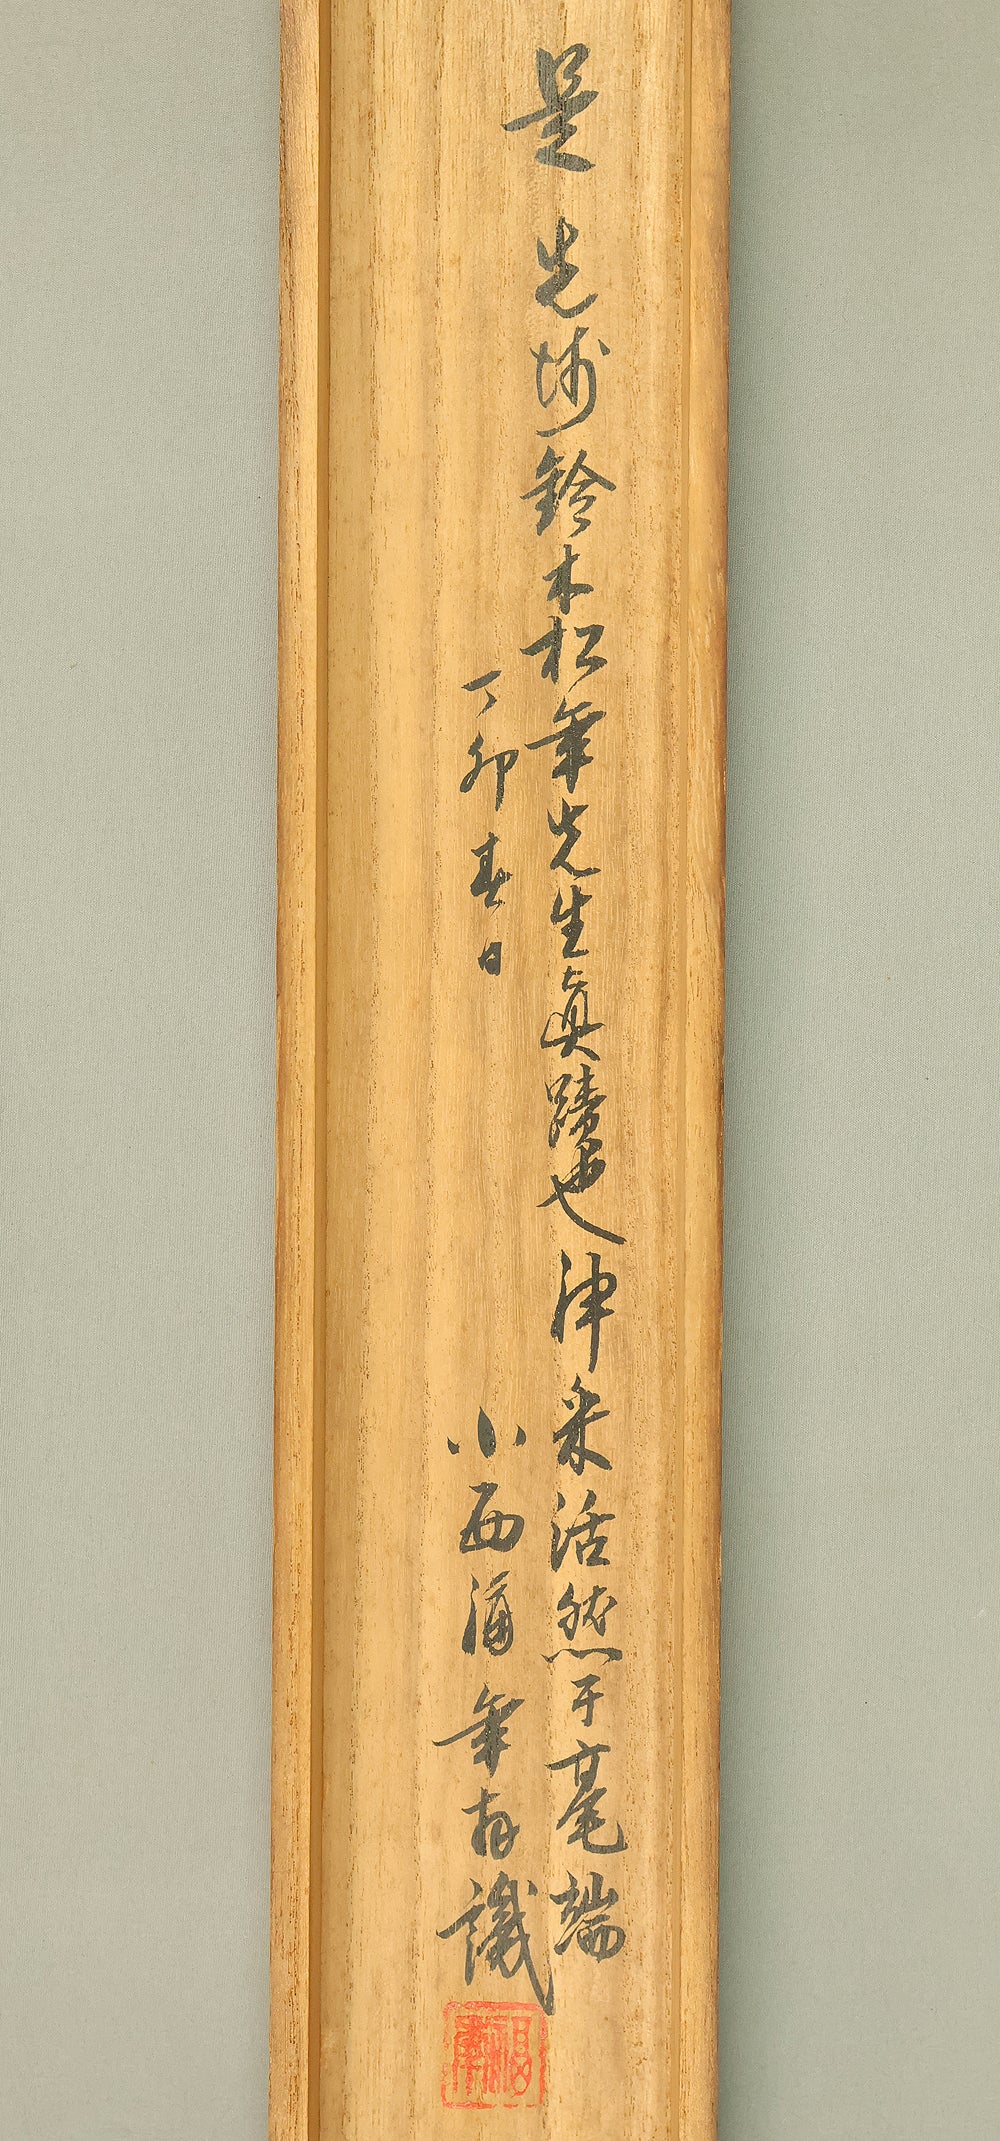 是先師鈴木松年先生眞蹟也神采活然于毫端
丁卯春日 小西福年拝識
福年